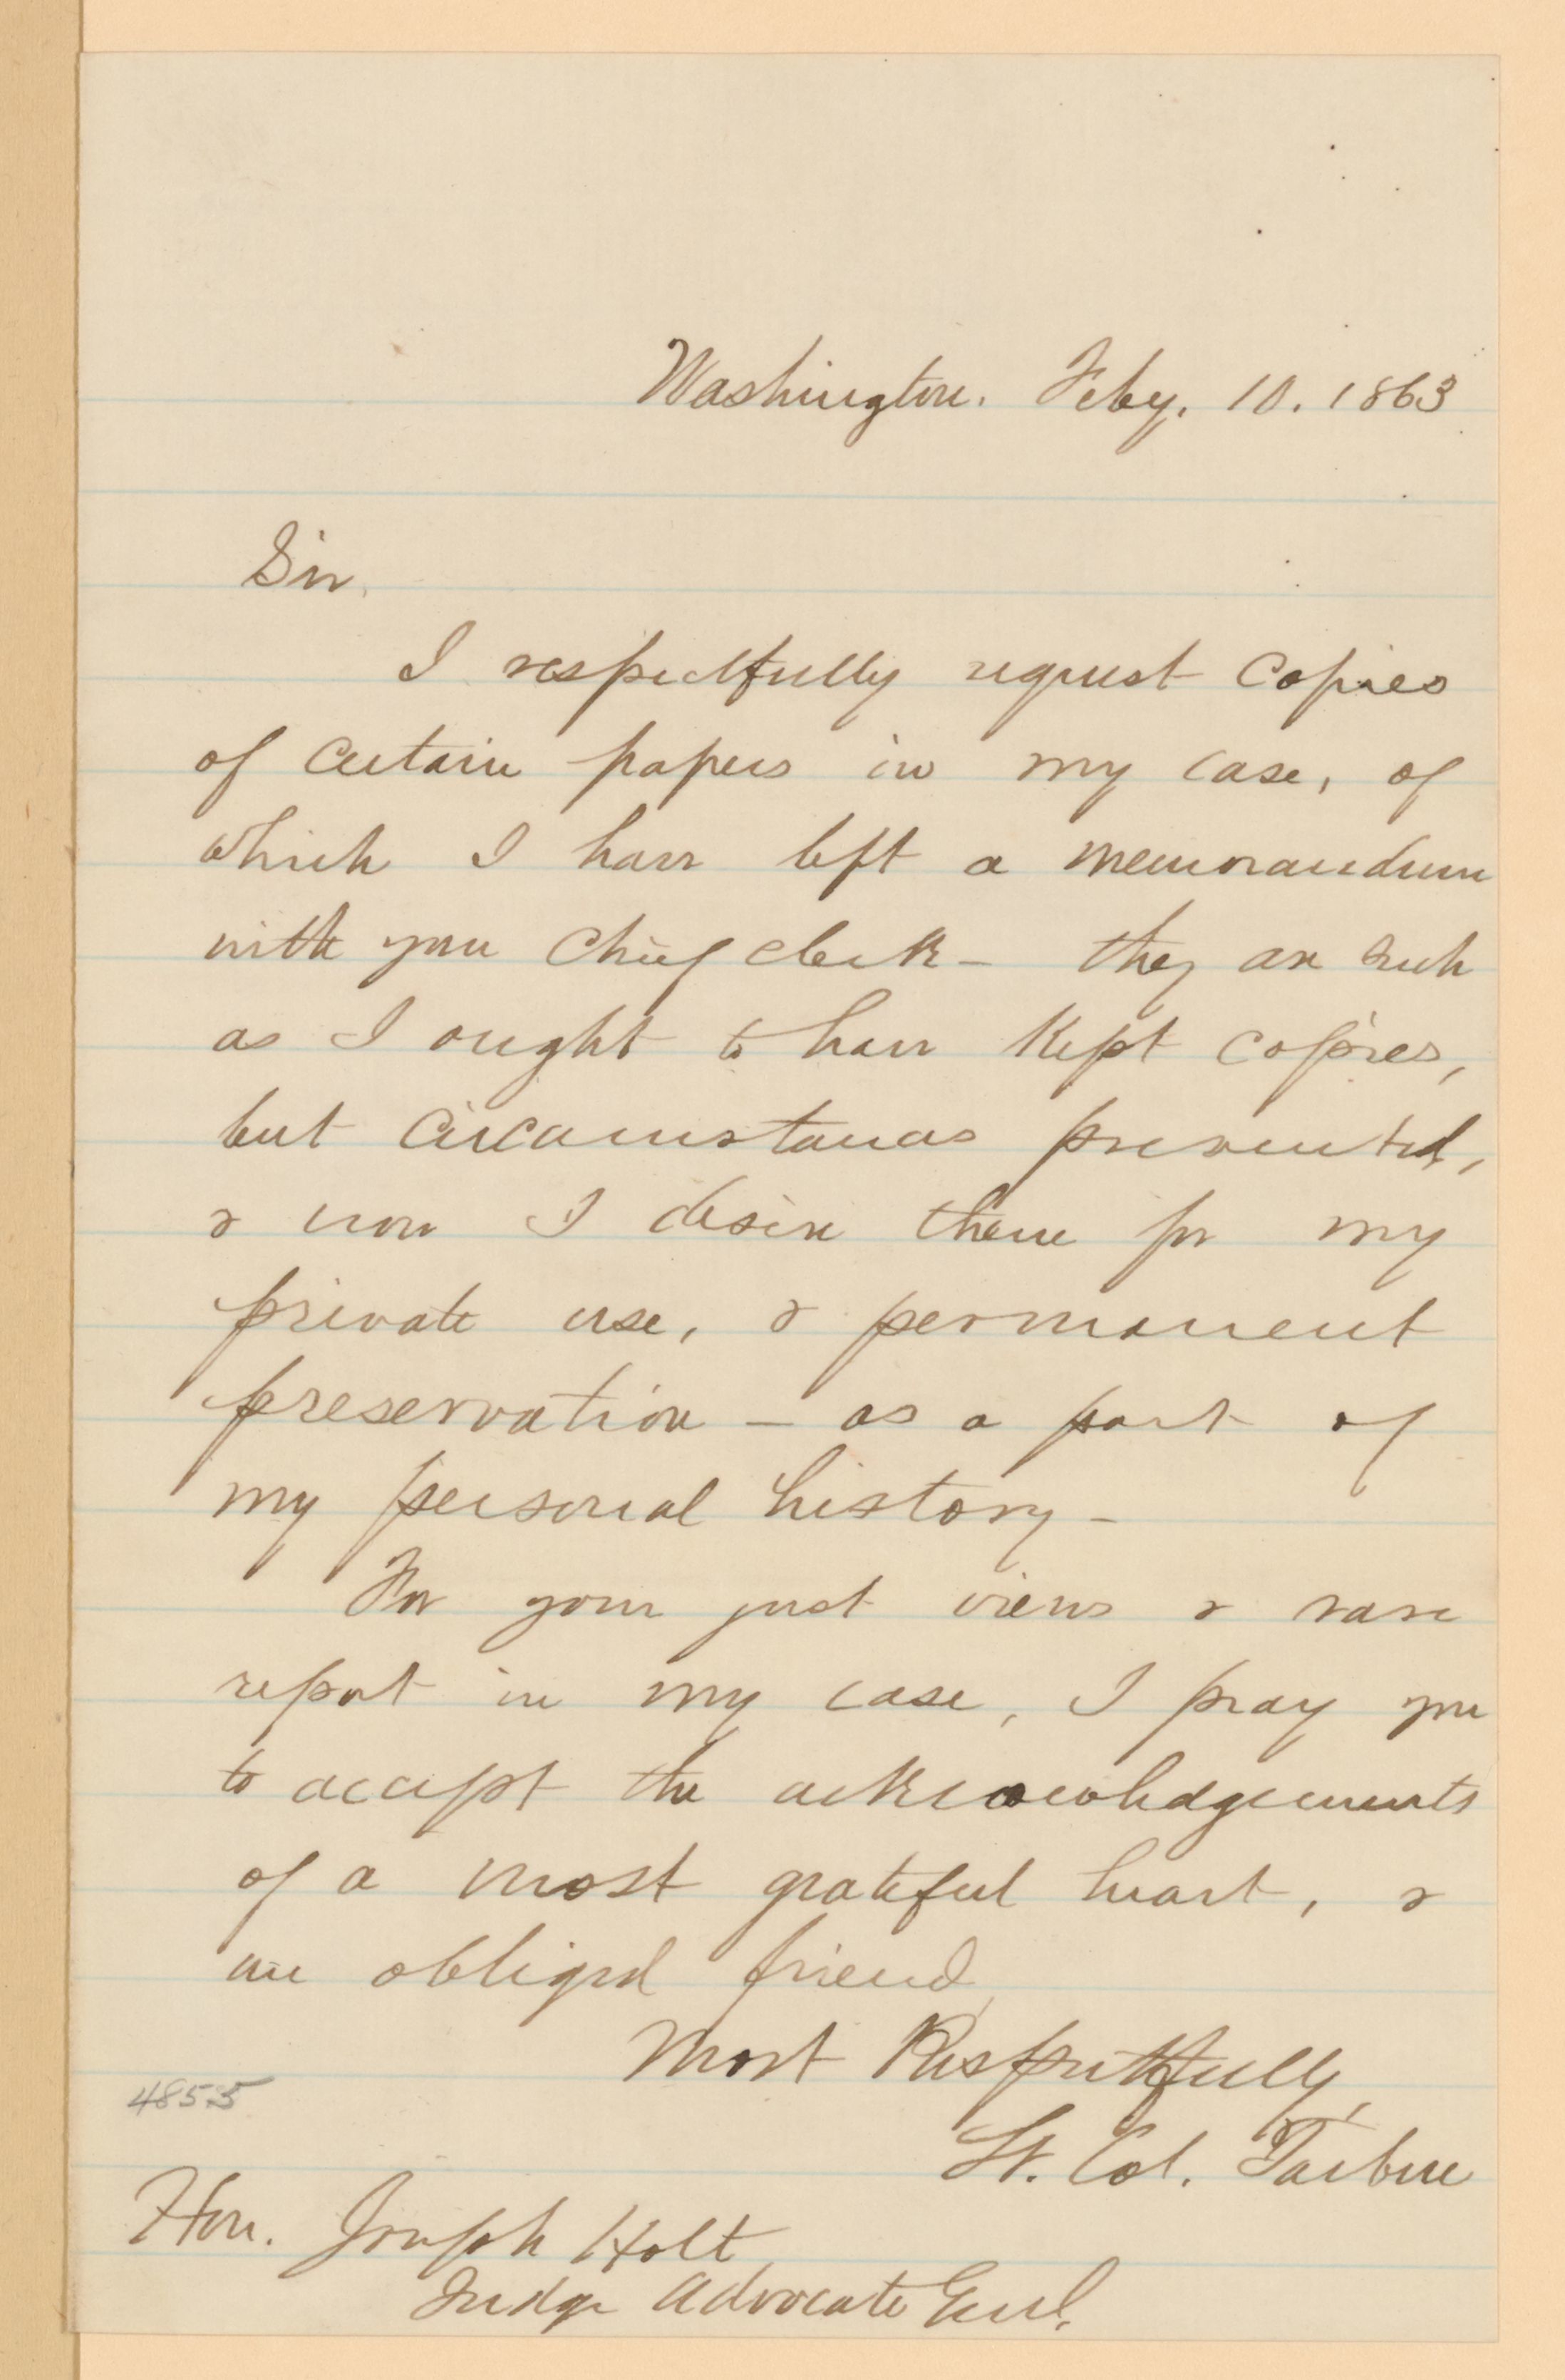 Washington. Feby. 10. 1863
Sir,
I respectfully request copies
of certain papers in my case, of
which I have left a memorandum
with you chief clerk – they are such
as I ought to have kept copies,
but circumstances prevented,
& now I desire them for my
private use, & permanent
preservation – as a part of
my personal history –
For your just views & rare
report in my case, I pray you
to accept the acknowledgements
of a most grateful heart, &
an obliged friend,
Most Respectfully,
Lt. Col. Tarbree
4855
Hon. Joseph Holt,
Judge Advocate Genl.